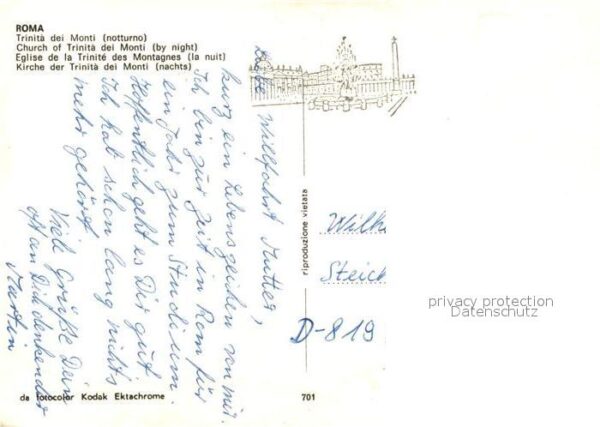 ROMA
Trinità dei Monti (notturno)
Church of Trinità dei Monti (by night)
Eglise de la Trinité des Montagnes (la nuit)
Kirche der Trinità dei Monti (nachts)
Liebe Willfahrt Mutter,
kurz ein Lebenszeichen von mir.
Ich bin zur Zeit in Rom für
ein Jahr zum Studium.
Hoffentlich geht es Dir gut
Ich hab schon lang nichts
mehr gehört.
Viele Grüße Dein
oft an Dich denkender
Martin
riproduzione vietata
Wilh
Steich
D-819
privacy protection
Datenschutz
da fotocolor Kodak Ektachrome
701